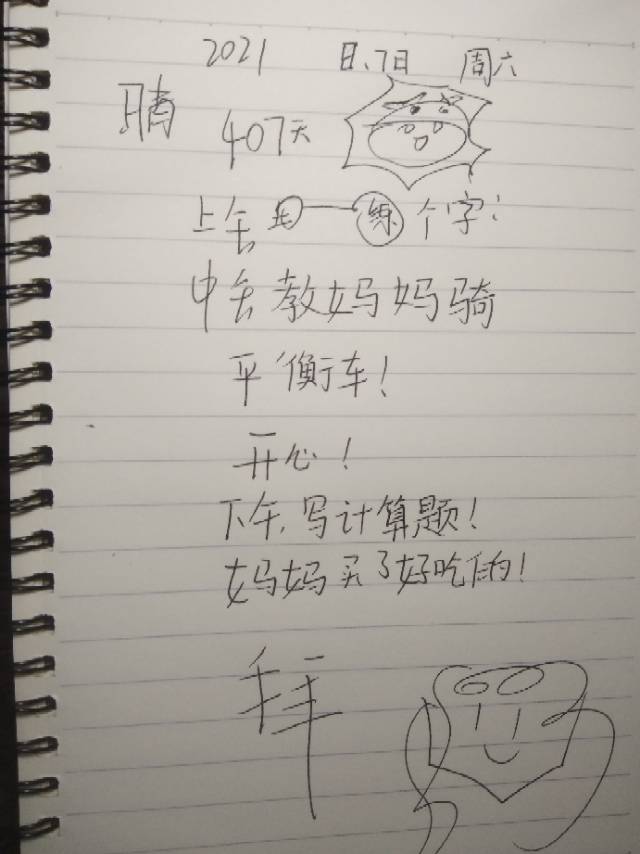 2021 日、7日 周六
晴 407天
上午 练个字:
中午教妈妈骑
平衡车!
开心!
下午,写计算题!
妈妈买了好吃的!
拜